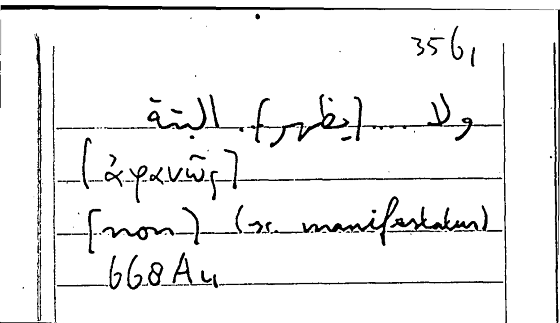 3561
ولا .... [يظهر]. البتة
[ἀφανῶς]
[non] (sc. manifestatur)
668A4